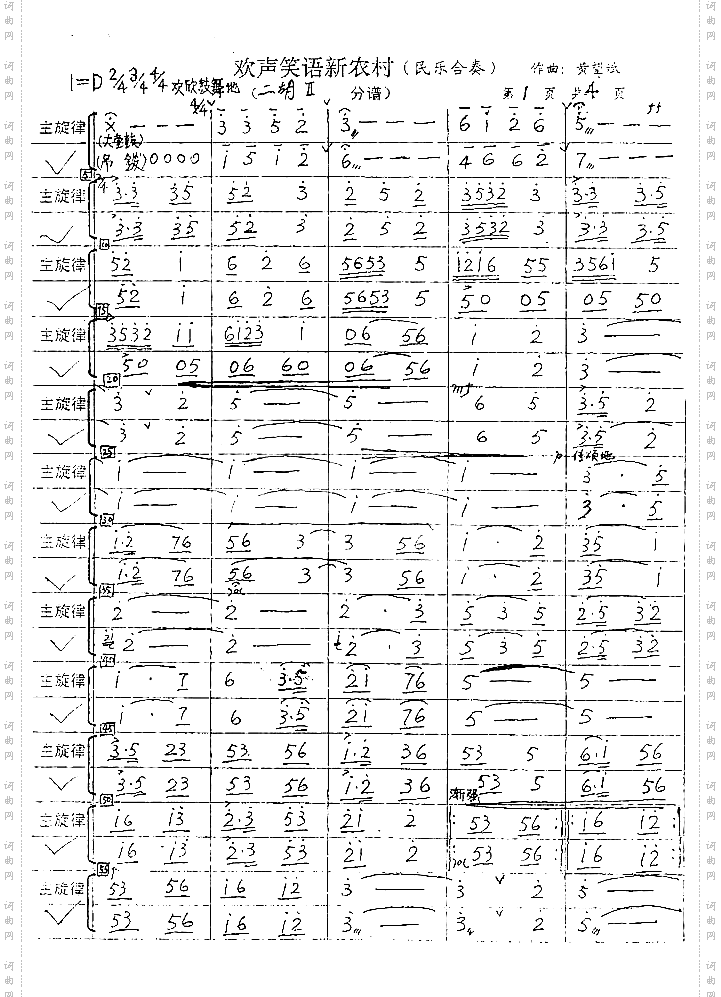 欢声笑语新农村（民乐合奏） 作曲：黄望斌
1=D 2/4 3/4 4/4 欢欣鼓舞地（二胡Ⅱ 分谱） 第1页 共4页
4/4 ff
主旋律 X — — — 3 3 5 2 3 — — — 6 1 2 6 5 — — —
(吊钹) 0 0 0 0 1 5 1 2 6 — — — 4 6 6 2 7 — — —
主旋律 3·3 35 52 3 2 5 2 3532 3 3·3 3·5
3·3 35 52 3 2 5 2 3532 3 3·3 3·5
10
主旋律 52 1 6 2 6 5653 5 1216 55 3561 5
52 1 6 2 6 5653 5 50 05 05 50
15
主旋律 3532 11 6123 1 06 56 1 2 3 —
50 05 06 60 06 56 1 2 3 —
20 mf
主旋律 3 2 5 — 5 — 6 5 3·5 2
3 2 5 — 5 — 6 5 3·5 2
25 p
主旋律 1 — 1 — 1 — 1 — 3 · 5
1 — 1 — 1 — 1 — 3 · 5
30
主旋律 1·2 76 56 3 3 56 1 · 2 35 1
1·2 76 56 3 3 56 1 · 2 35 1
35
主旋律 2 — 2 — 2 · 3 5 3 5 2·5 32
2 — 2 — 2 · 3 5 3 5 2·5 32
40
主旋律 1 · 7 6 3·5 21 76 5 — 5 —
1 · 7 6 3·5 21 76 5 — 5 —
45
主旋律 3·5 23 53 56 1·2 36 53 5 6·1 56
3·5 23 53 56 1·2 36 53 5 6·1 56
50 渐强
主旋律 16 13 2·3 53 21 2 53 56 16 12
16 13 2·3 53 21 2 53 56 16 12
55
主旋律 53 56 16 12 3 — 3 2 5 —
53 56 16 12 3 — 3 2 5 —
词曲网